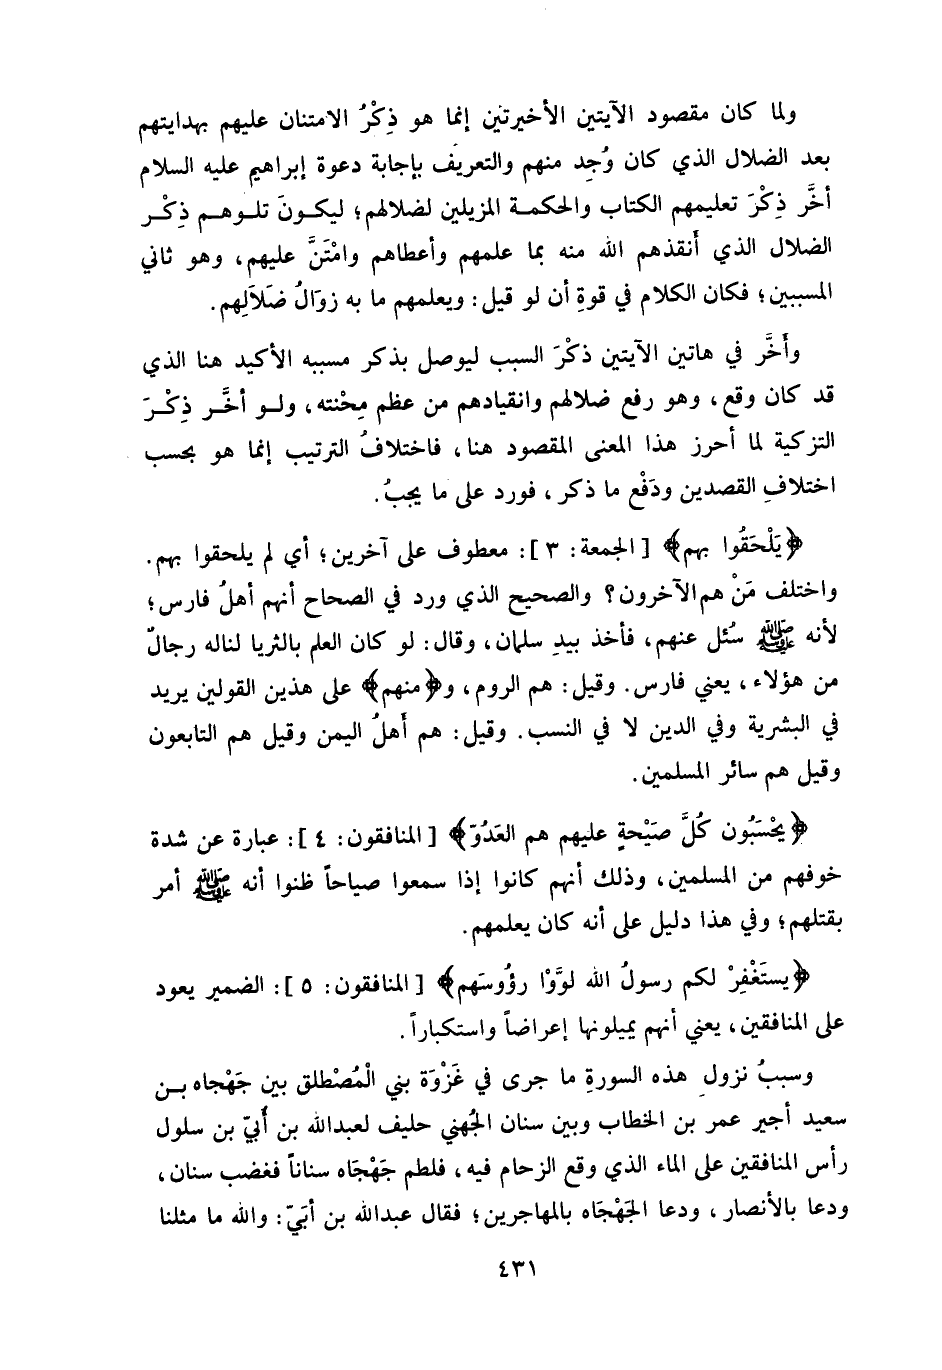 ولما كان مقصود الآيتين الأخيرتين إنما هو ذِكْرُ الامتنان عليهم بهدايتهم
بعد الضلال الذي كان وُجِد منهم والتعريف بإجابة دعوة إبراهيم عليه السلام
أخَّر ذِكْرَ تعليمهم الكتاب والحكمة المزيلين لضلالهم؛ ليكونَ تلوهم ذِكْر
الضلال الذي أَنقذهم الله منه بما علمهم وأعطاهم وامْتَنَّ عليهم، وهو ثاني
المسببين؛ فكان الكلام في قوةِ أن لو قيل: ويعلمهم ما به زوَالُ ضَلاَلِهم.
وأَخَّر في هاتين الآيتين ذكْرَ السبب ليوصل بذكر مسببه الأكيد هنا الذي
قد كان وقع، وهو رفع ضلالهم وانقيادهم من عظم مِحْنته، ولو أخَّر ذِكْرَ
التزكية لما أحرز هذا المعنى المقصود هنا، فاختلافُ الترتيب إنما هو بحسب
اختلافِ القصدين ودَفْع ما ذكر، فورد على ما يجبُ.
﴿يَلْحَقُوا بهم﴾ [الجمعة: ٣]: معطوف على آخرين؛ أي لم يلحقوا بهم.
واختلف مَنْ هم الآخرون؟ والصحيح الذي ورد في الصحاح أنهم أهلُ فارس؛
لأنه ﷺ سُئل عنهم، فأخذ بيدِ سلمان، وقال: لو كان العلم بالثريا لناله رجالٌ
من هؤلاء، يعني فارس. وقيل: هم الروم، و﴿منهم﴾ على هذين القولين يريد
في البشرية وفي الدين لا في النسب. وقيل: هم أَهلُ اليمن وقيل هم التابعون
وقيل هم سائر المسلمين.
﴿يحْسَبُون كُلَّ صَيْحةٍ عليهم هم العَدُوّ﴾ [المنافقون: ٤]: عبارة عن شدة
خوفهم من المسلمين، وذلك أنهم كانوا إذا سمعوا صياحاً ظنوا أنه ﷺ أمر
بقتلهم؛ وفي هذا دليل على أنه كان يعلمهم.
﴿يستَغْفِرْ لكم رسولُ الله لوَّوْا رؤُوسَهم﴾ [المنافقون: ٥]: الضمير يعود
على المنافقين، يعني أنهم يميلونها إعراضاً واستكباراً.
وسببُ نزولِ هذه السورةِ ما جرى في غَزْوَة بني الْمُصْطلق بين جَهْجاه بن
سعيد أجير عمر بن الخطاب وبين سنان الجُهني حليف لعبدالله بن أُبيّ بن سلول
رأس المنافقين على الماء الذي وقع الزحام فيه، فلطم جَهْجَاه سناناً فغضب سنان،
ودعا بالأنصار، ودعا الجَهْجَاه بالمهاجرين؛ فقال عبدالله بن أبَيّ: والله ما مثلنا
٤٣١